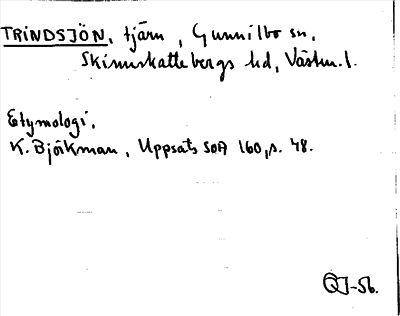 TRINDSJÖN, tjärn, Gunnilbo sn,
Skinnskattebergs hd, Västm.l.
Etymologi.
K. Björkman, Uppsats SOÄ 160, s. 48.
-56.